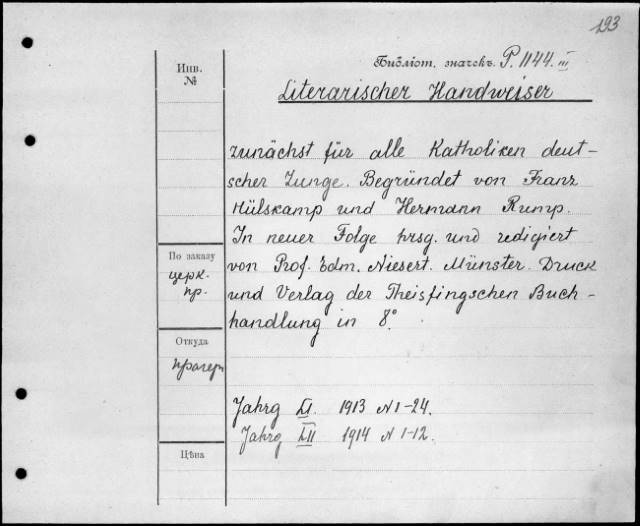 193
Инв.
№
Библіот. значекъ P. 1144. III
Literarischer Handweiser
zunächst für alle Katholiken deut-
scher Zunge. Begründet von Franz
Hülskamp und Hermann Rump.
In neuer Folge hrsg. und redigiert
По заказу
церк.
пр.
von Prof. Edm. Niesert. Münster. Druck
und Verlag der Theissingschen Buch-
handlung in 8°.
Откуда
Jahrg LI. 1913 N 1-24.
Jahrg LII 1914 N 1-12.
Цѣна